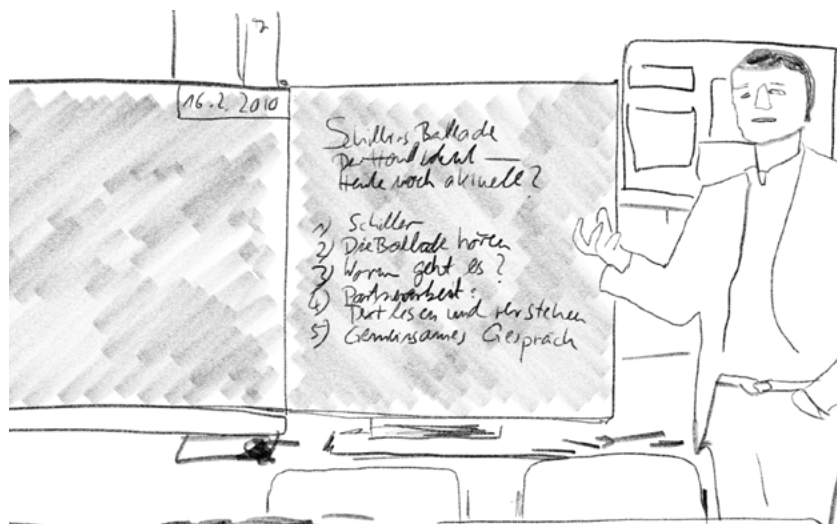 16.2.2010
Schillers Ballade
Der Handschuh —
Heute noch aktuell?
1) Schiller
2) Die Ballade hören
3) Worum geht es?
4) Partnerarbeit:
Text lesen und verstehen
5) Gemeinsames Gespräch